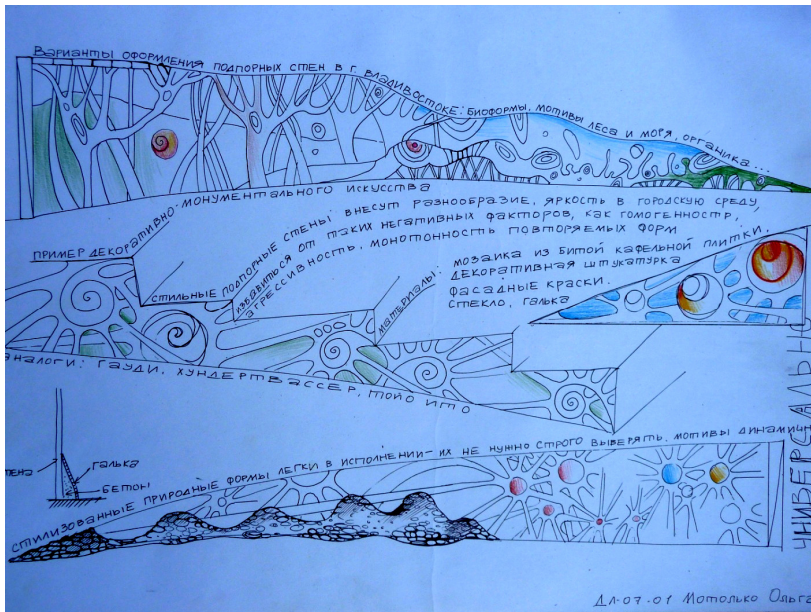 Варианты оформления подпорных стен в г. Владивостоке: биоформы, мотивы леса и моря, органика...
пример декоративно-монументального искусства
стильные подпорные стены внесут разнообразие, яркость в городскую среду,
избавиться от таких негативных факторов, как гомогенность,
агрессивность, монотонность повторяемых форм
материалы: мозаика из битой кафельной плитки,
декоративная штукатурка
фасадные краски.
стекло, галька
аналоги: гауди, хундертвассер, тойо ито
стена
галька
бетон
стилизованные природные формы легки в исполнении - их не нужно строго выверять. мотивы динамичн
универсальн
ДЛ-07-01 Мотолько Ольга